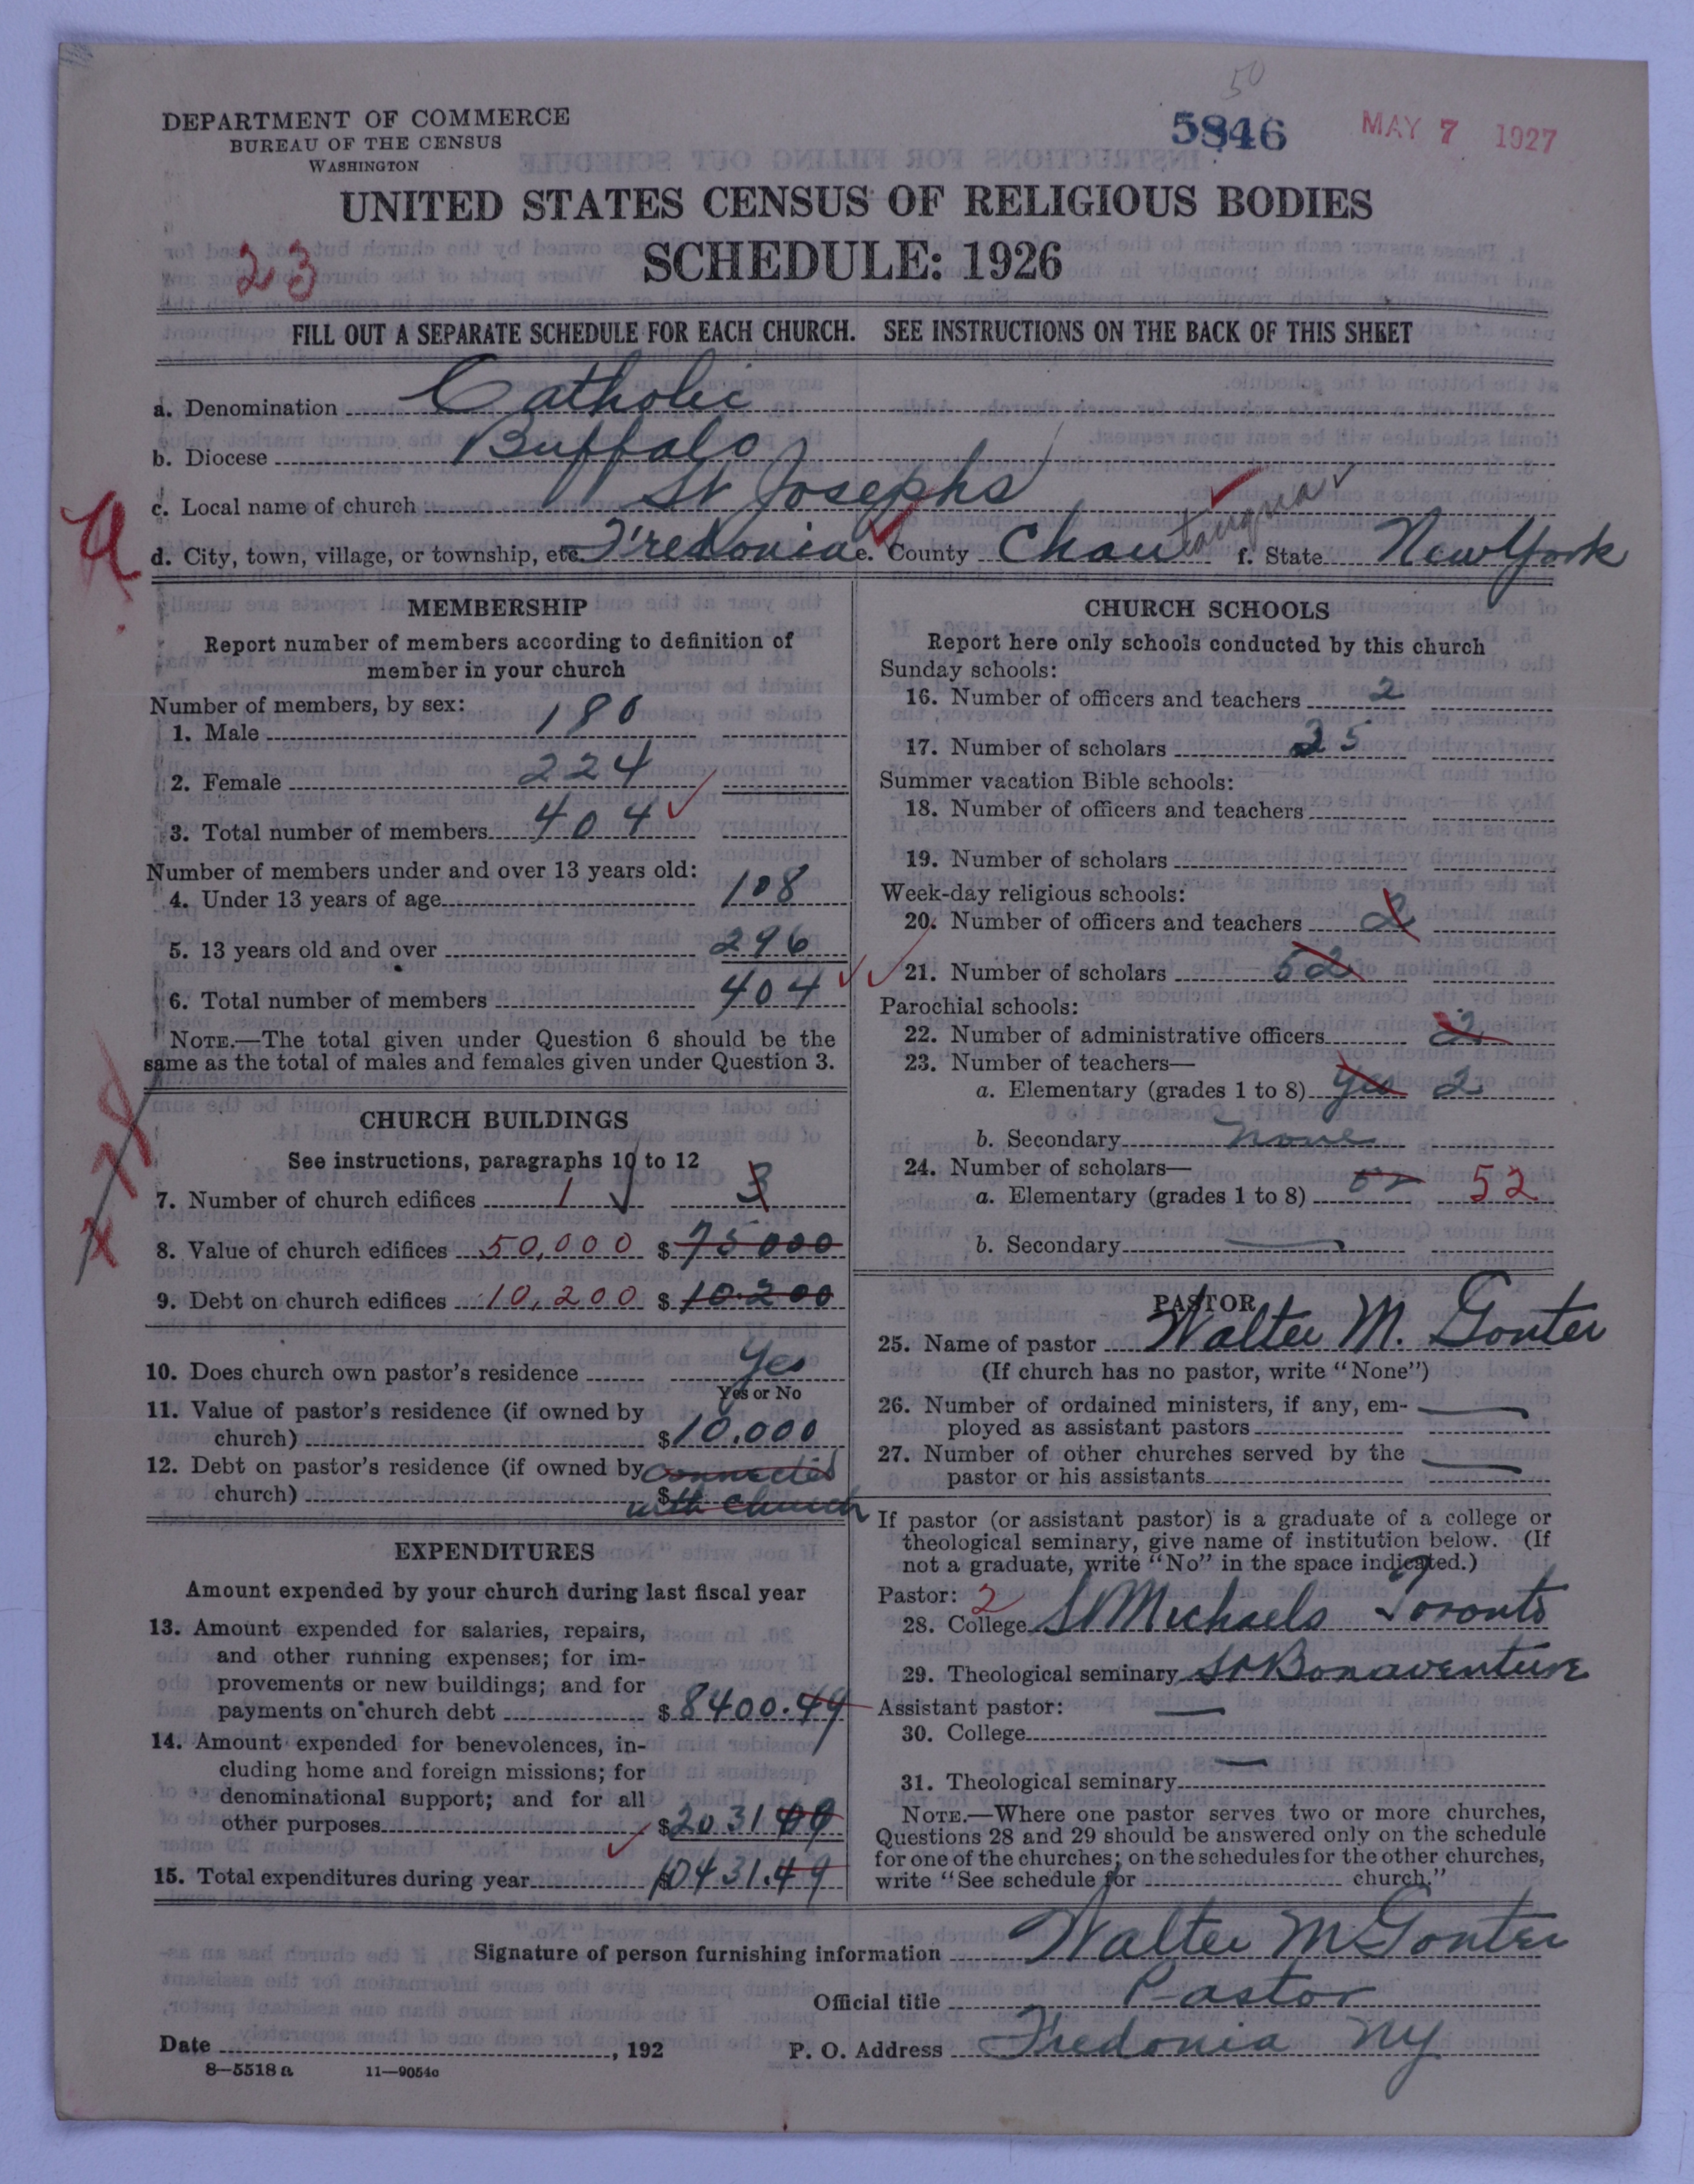 50
5846
MAY 7 1927
DEPARTMENT OF COMMERCE
BUREAU OF THE CENSUS
WASHINGTON
UNITED STATES CENSUS OF RELIGIOUS BODIES
SCHEDULE: 1926
23
FILL OUT A SEPARATE SCHEDULE FOR EACH CHURCH. SEE INSTRUCTIONS ON THE BACK OF THIS SHEET
a. Denomination Catholic
b. Diocese Buffalo
c. Local name of church St Josephs
d. City, town, village, or township, etc. Fredonia e. County Chautauqua f. State New York
MEMBERSHIP
Report number of members according to definition of
member in your church
Number of members, by sex:
1. Male 180
2. Female 224
3. Total number of members 404
Number of members under and over 13 years old:
4. Under 13 years of age 108
5. 13 years old and over 296
6. Total number of members 404
NOTE.—The total given under Question 6 should be the
same as the total of males and females given under Question 3.
CHURCH BUILDINGS
See instructions, paragraphs 10 to 12
7. Number of church edifices 1 3
8. Value of church edifices 50,000 $ 75000
9. Debt on church edifices 10,200 $ 10.200
10. Does church own pastor's residence Yes
Yes or No
11. Value of pastor's residence (if owned by
church) $ 10.000
12. Debt on pastor's residence (if owned by connected
church) $ with church
EXPENDITURES
Amount expended by your church during last fiscal year
13. Amount expended for salaries, repairs,
and other running expenses; for im-
provements or new buildings; and for
payments on church debt $ 8400.49
14. Amount expended for benevolences, in-
cluding home and foreign missions; for
denominational support; and for all
other purposes $ 2031.00
15. Total expenditures during year $ 10431.49
CHURCH SCHOOLS
Report here only schools conducted by this church
Sunday schools:
16. Number of officers and teachers 2
17. Number of scholars 25
Summer vacation Bible schools:
18. Number of officers and teachers
19. Number of scholars
Week-day religious schools:
20. Number of officers and teachers 2
21. Number of scholars 52
Parochial schools:
22. Number of administrative officers 2
23. Number of teachers—
a. Elementary (grades 1 to 8) Yes 2
b. Secondary none
24. Number of scholars—
a. Elementary (grades 1 to 8) 52 52
b. Secondary
PASTOR
25. Name of pastor Walter M. Gonter
(If church has no pastor, write "None")
26. Number of ordained ministers, if any, em-
ployed as assistant pastors
27. Number of other churches served by the
pastor or his assistants
If pastor (or assistant pastor) is a graduate of a college or
theological seminary, give name of institution below. (If
not a graduate, write "No" in the space indicated.)
Pastor: 2
28. College St Michaels Toronto
29. Theological seminary St Bonaventure
Assistant pastor:
30. College
31. Theological seminary
NOTE.—Where one pastor serves two or more churches,
Questions 28 and 29 should be answered only on the schedule
for one of the churches; on the schedules for the other churches,
write "See schedule for church."
Signature of person furnishing information Walter M Gonter
Official title Pastor
Date , 192 P. O. Address Fredonia NY
8—5518 a 11—9054c